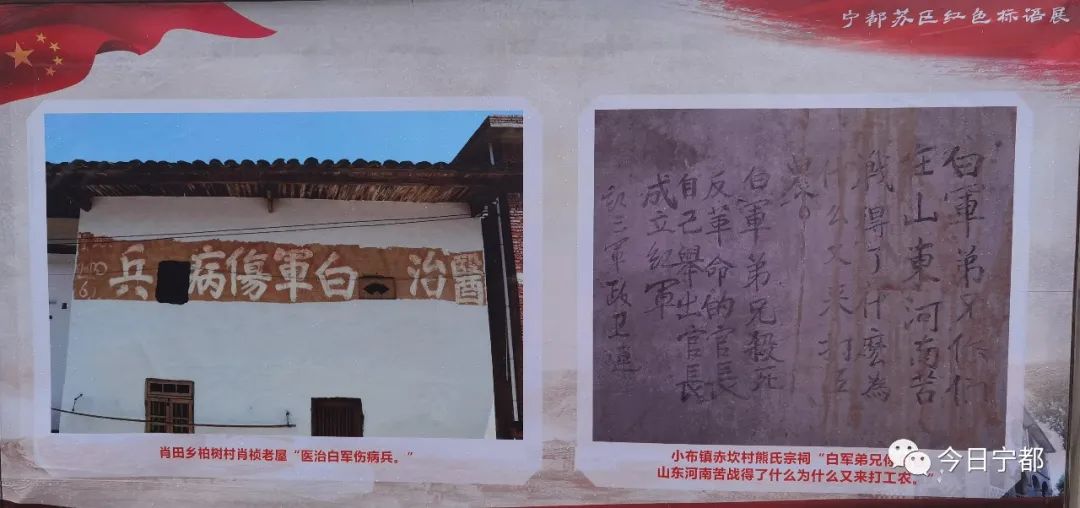 宁都苏区红色标语展
醫治白軍傷病兵
白軍弟兄你们
在山東河南苦
戰得了什麼為
什么又来打工
農。
白軍弟兄殺死
反革命的官長
自己舉出官長
成立紅軍
三軍政卫連
肖田乡柏树村肖桢老屋“医治白军伤病兵。”
小布镇赤坎村熊氏宗祠“白军弟兄你
山东河南苦战得了什么为什么又来打工农。”
今日宁都